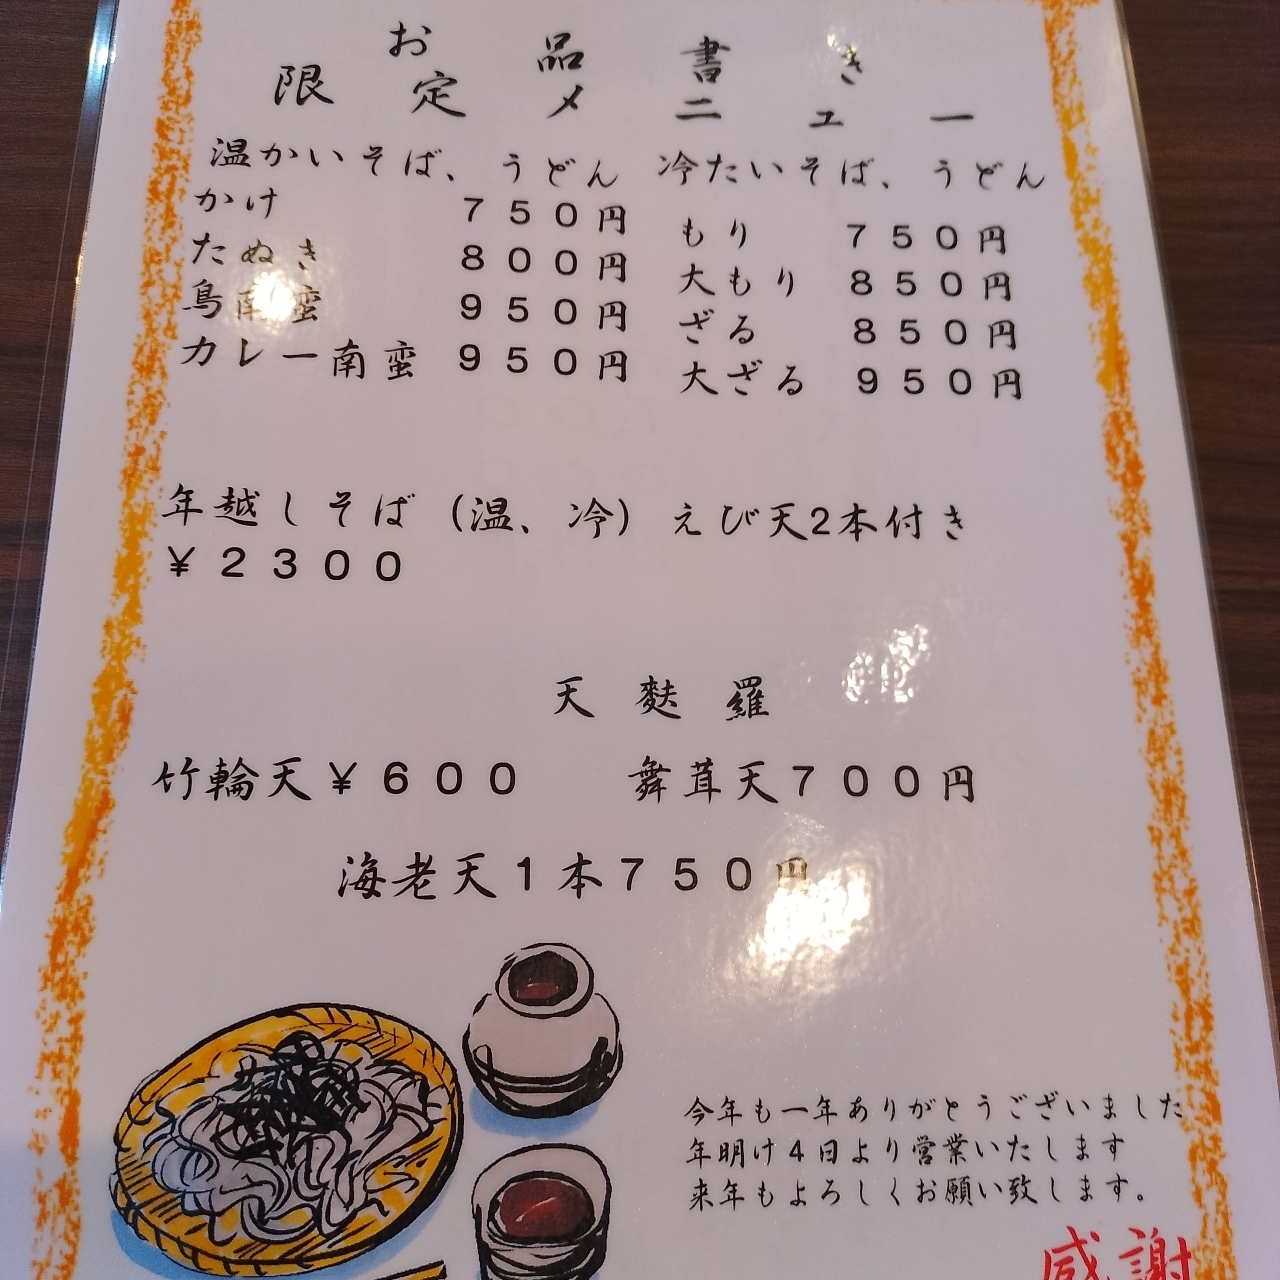 お品書き
限定メニュー
温かいそば、うどん
かけ 750円
たぬき 800円
鳥南蛮 950円
カレー南蛮 950円
冷たいそば、うどん
もり 750円
大もり 850円
ざる 850円
大ざる 950円
年越しそば（温、冷）えび天2本付き
￥2300
天麩羅
竹輪天￥600 舞茸天700円
海老天1本750円
今年も一年ありがとうございました
年明け4日より営業いたします
来年もよろしくお願い致します。
感謝